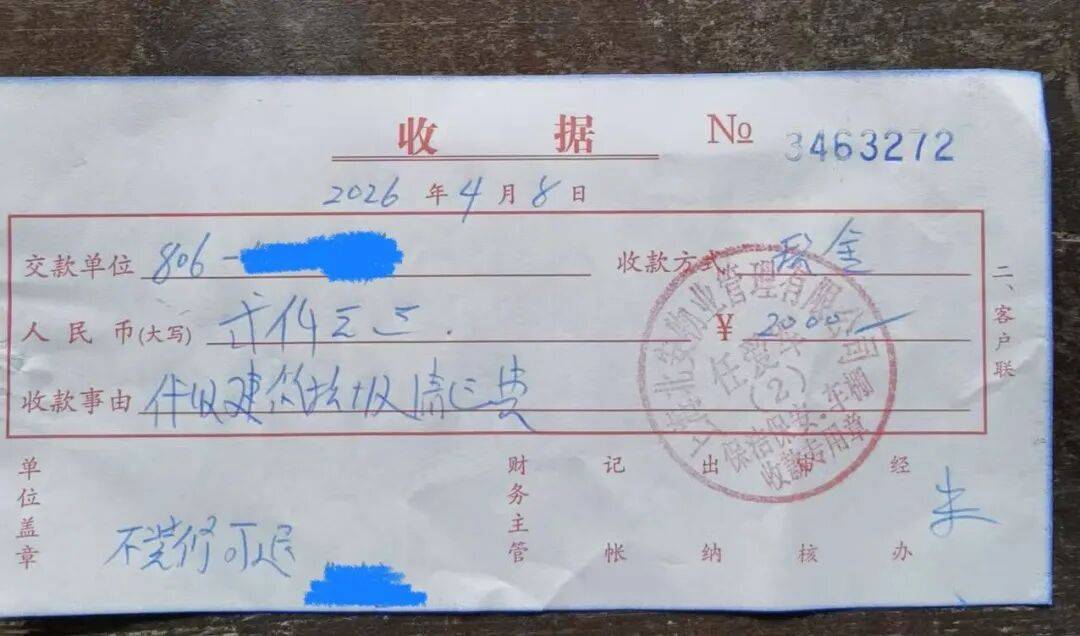 收据 № 3463272
2026年4月8日
交款单位 806- 收款方式 现金
人民币(大写) 贰仟元正. ¥ 2000—
收款事由 代收建筑垃圾清运费
二、客户联
北安物业管理有限公司
(2)
保洁保安·车棚
收款专用章
单位盖章 财务主管 记帐 出纳 审核 经办 朱
不装修可退